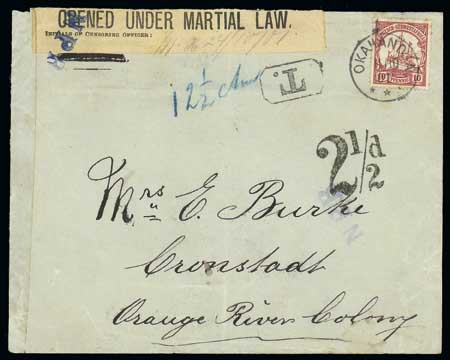 OPENED UNDER MARTIAL LAW.
INITIALS OF CENSORING OFFICER:
12½
T.
OKAHANDJA
10 PFENNIG 10
2½d
Mrs E. Burke
Cronstadt
Orange River Colony